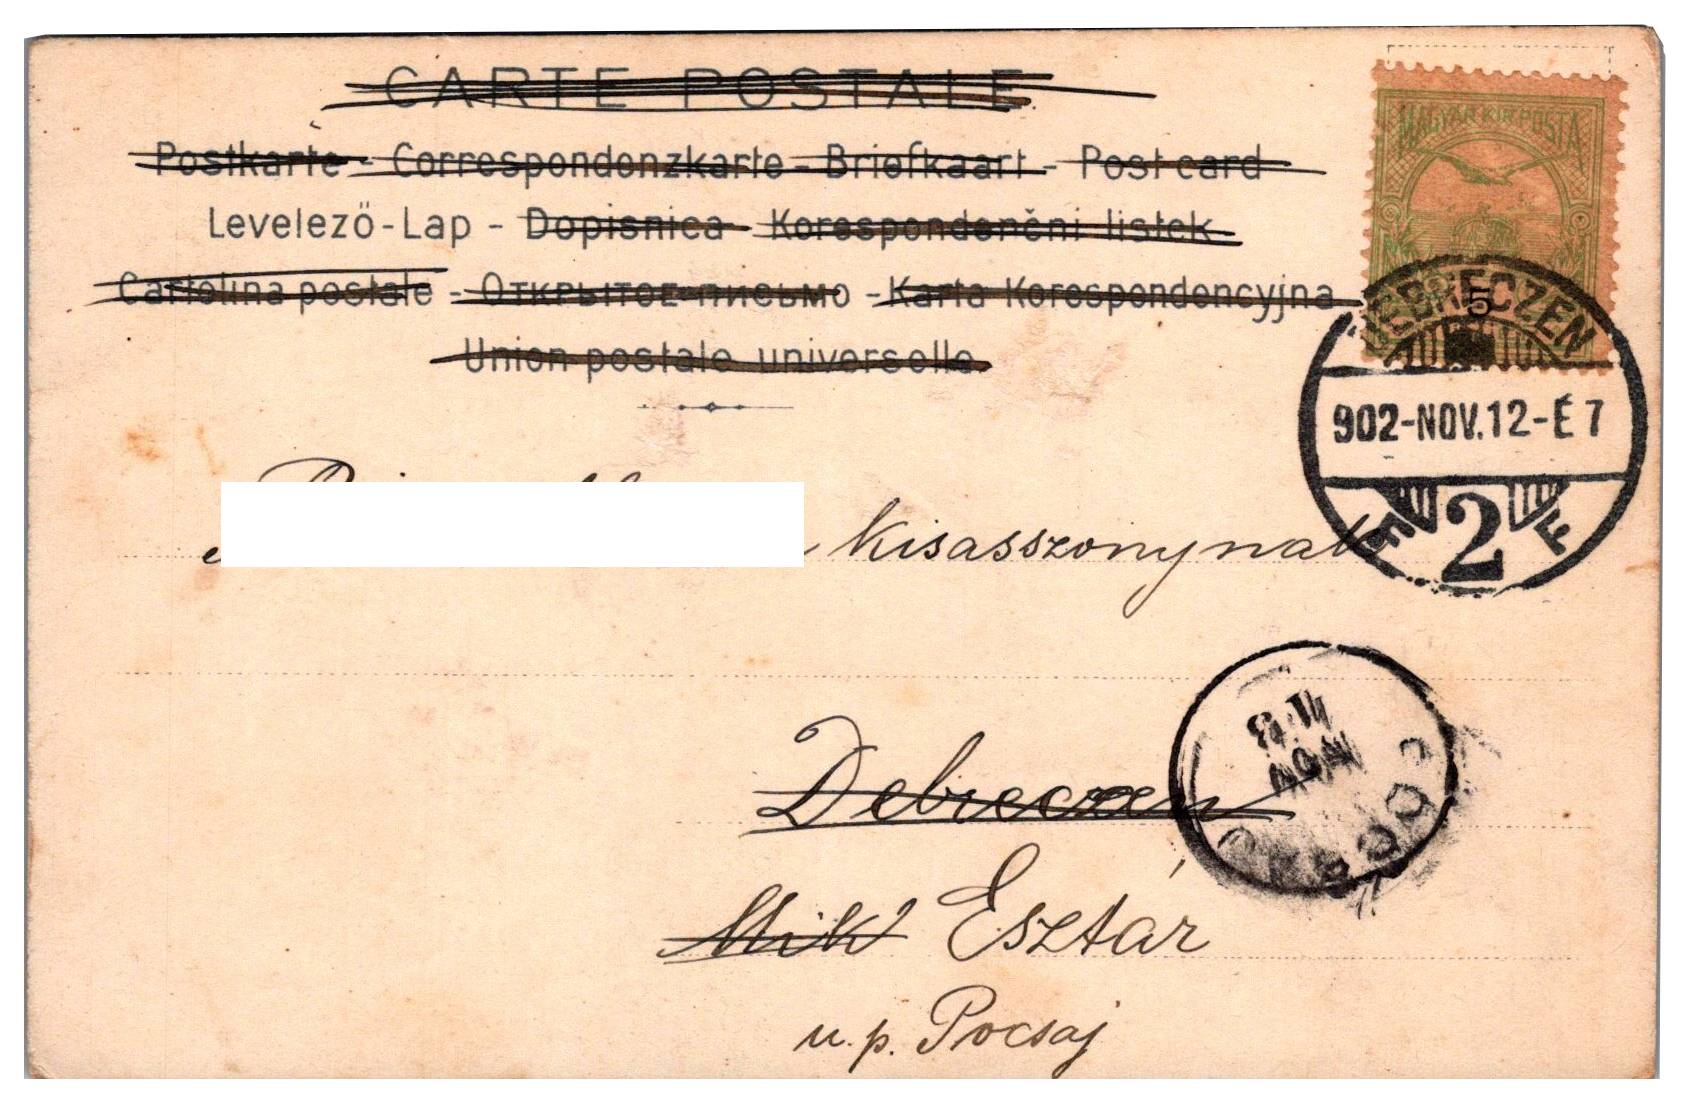 CARTE POSTALE
Postkarte - Correspondenzkarte - Briefkaart - Post card
Levelező-Lap - Dopisnica - Korespondenční listek
Cartolina postale - Открытое письмо - Karta Korespondencyjna
Union postale universelle.
MAGYAR KIR. POSTA
5
DEBRECZEN
902-NOV.12-É 7
2
kisasszonynak
Debreczen
Mik Esztár
u.p. Pocsaj